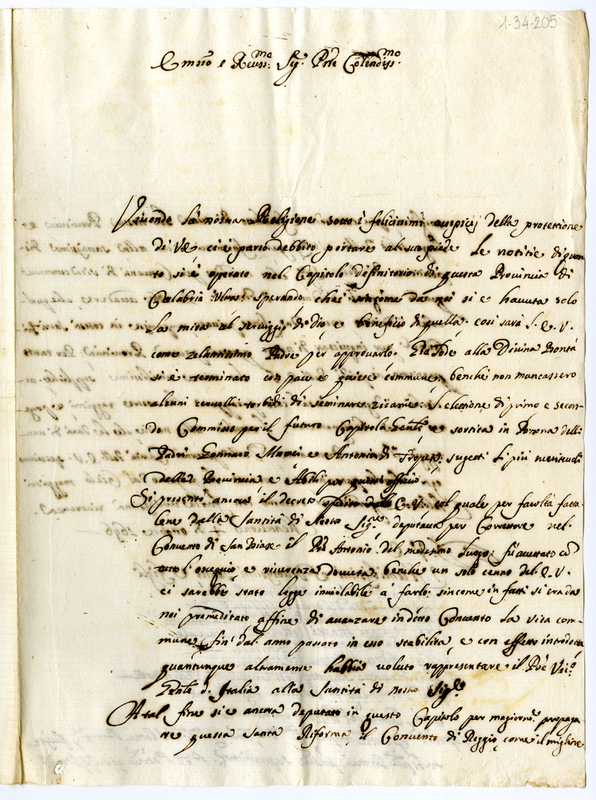 1-34-205
Emmo e Reuss.mo Sig. Pñe Colendiss.mo
Vivendo la nostra Religione sotto i felicissimi auspicij della protettione
di VE ci è parso debbito portare al suo piede le notitie di quan
to si è operato nel Capitolo definitorio di questa Provincia di
Calabria Ultra sperando, che si come da noi si è havuta solo
la mira al servigio di Dio e beneficio di quella, così sarà l. E. V.
come zelantissimo Padre per approuarlo. Et a Lode alla Divina Bontà
si è terminato con pace e quiete commune, benche non mancassero
alcuni cervelli torbidi di seminare zizanie: l'elettione di primo e secon
do Commiss per il futuro Capitolo Genle è sortita in Persona delli
Padri Gennaro Maria e Antonio di Tropea, sugetti li più meritevoli
della Provincia e Abbli per
Si presentò ancora il decreto E. V. col quale per facoltà fatta
lene dalla Santità di Nostro Sigre deputava per Correttore nel
Convento di San Biase il Pre Antonio del medesimo luogo: fù accettato cō
tutto l'ossequio e riverenza dovuta, benche un solo cenno del E. V.
ci sarebbe stato legge inviolabile à farlo: sincome in fatti si era da
noi premeditato affine di avanzare in detto Convento la vita com-
mune, fin dal anno passato in esso stabilita e con introdotta
quantunque altramente habbia voluto rappresentare il Pre Vic.
Genle d'Italia alla Santità di nostro Sigre
A tal fine si è ancora deputato in questo Capitolo per magiormte propaga
re questa Santa Riforma, il Convento di Reggio, come il migliore